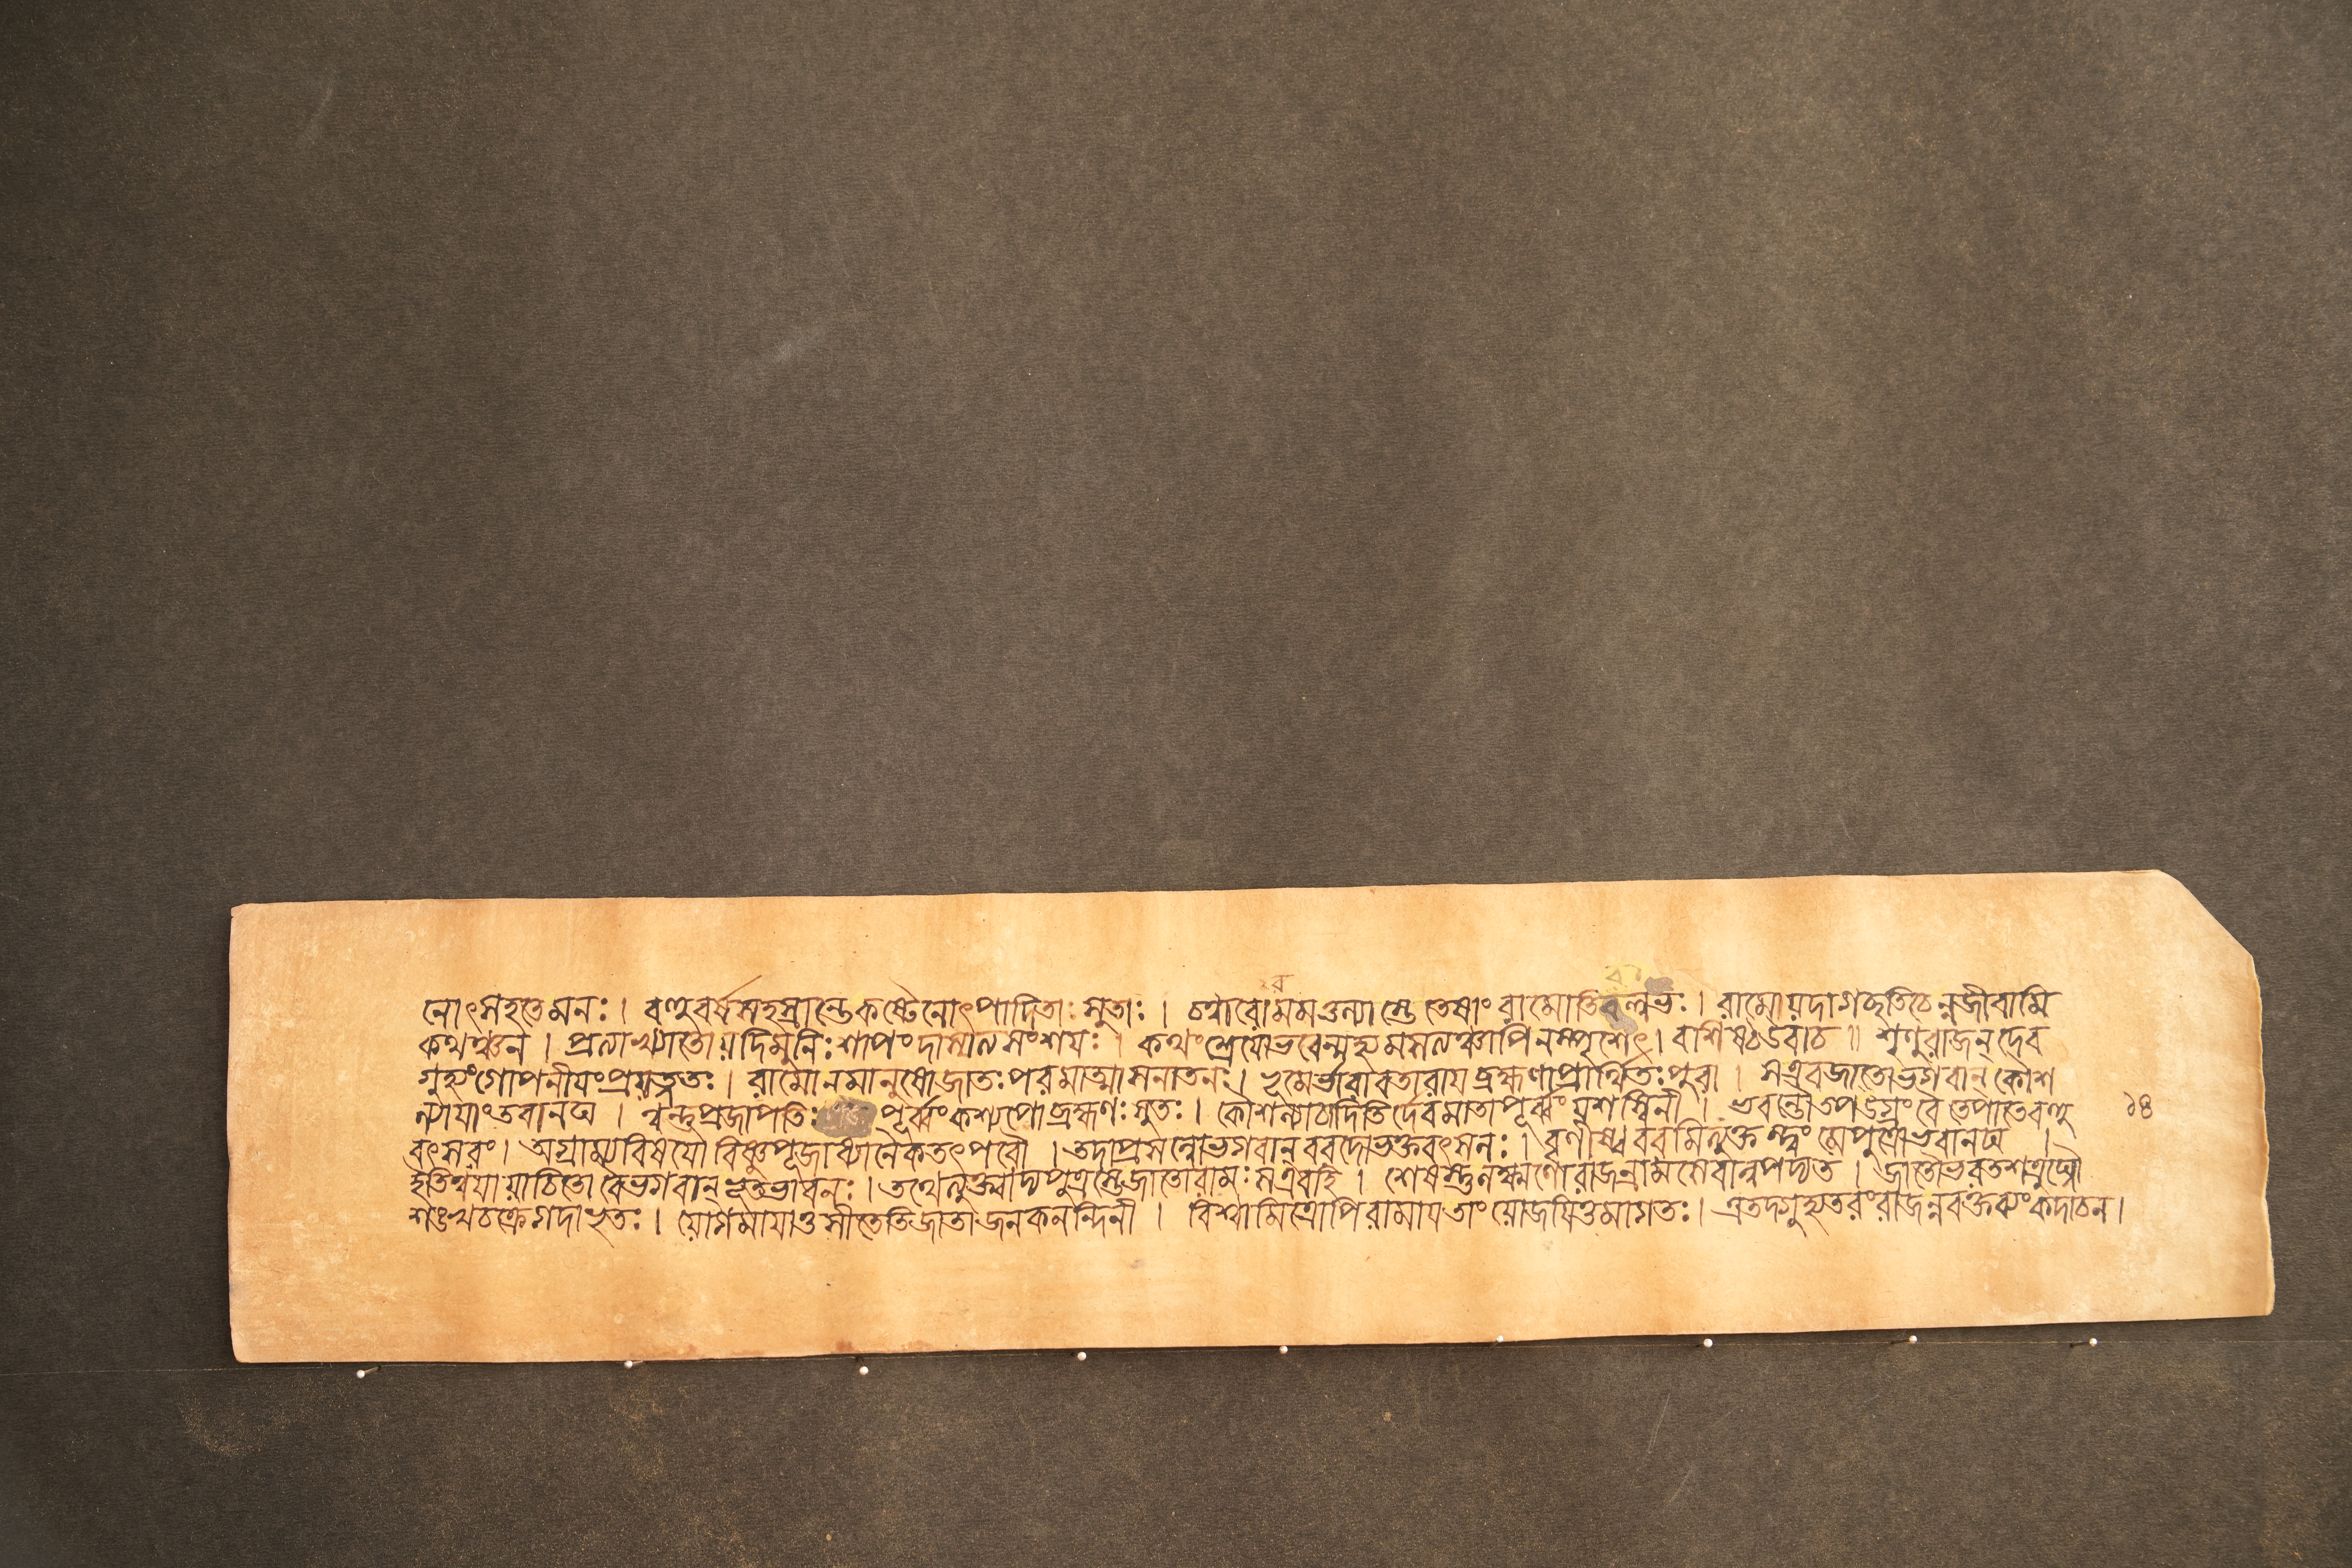 নোৎসহতেমনঃ। বহুবর্ষসহস্রান্তেকষ্টেনোৎপাদিতাঃসুতাঃ। চত্বারোমমতুল্যাস্তে তেষাংরামোতিবল্লভঃ। রামোয়দাগচ্ছতিচেন্নজীবামি
কথঞ্চন। প্রত্যাখ্যাতোয়দিমুনিঃশাপংদাস্যত্যসংশয়ঃ। কথংশ্রেয়োভবেন্মহ্যমসত্যঞ্চাপিনস্পৃশেৎ। বশিষ্ঠউবাচ॥ শৃণুরাজন্দেব
গুহ্যংগোপনীয়ংপ্রয়ত্নতঃ। রামোনমানুষোজাতঃপরমাত্মাসনাতনঃ। ভূমের্ভারাবতারায়ব্রহ্মণাপ্রার্থিতঃপুরা। সএবজাতোভগবান্কৌশ
ল্যায়াংতবানঘ। ত্বন্তুপ্রজাপতিঃ পূর্ব্বংকশ্যপোব্রহ্মণঃসুতঃ। কৌশল্যাচাদিতির্দেবমাতাপূর্ব্বংয়শস্বিনী। ভবন্তৌতপউগ্রংবৈতেপাতেবহু ১৪
বৎসরং। অগ্রাম্যবিষয়ৌবিষ্ণুপূজাধ্যানৈকতৎপরৌ। তদাপ্রসন্নোভগবান্বরদোভক্তবৎসলঃ। বৃণীষ্ববরমিত্যুক্তস্ত্বংমেপুত্রোভবানঘ।
ইতিত্বয়ায়াচিতোবৈভগবান্ভূতভাবনঃ। তথেত্যুক্ত্বাদ্যপুত্রস্তেজাতোরামঃসএবহি। শেষস্তুলক্ষ্মণোরাজন্রামমেবান্বপদ্যত। জাতৌভরতশত্রুঘ্নৌ
শঙ্খচক্রেগদাভৃতঃ। য়োগমায়াতুসীতেতিজাতাজনকনন্দিনী। বিশ্বামিত্রোপিরামায়তাংয়োজয়িতুমাগতঃ। এতদ্গুহ্যতরংরাজন্নবক্তব্যংকদাচন।